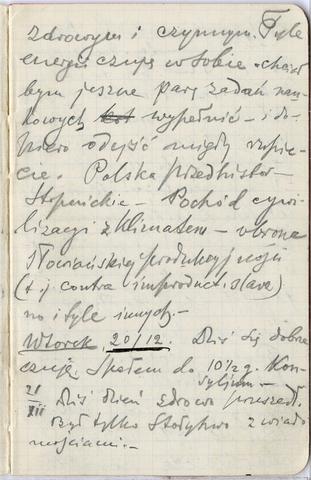 zdrowym i czynnym. Tyle
energii czuję w sobie – chciał
bym jeszcze parę zadań nau-
kowych wypełnić – i do-
piero odejść między
cie. Polska przedhistor –
– Pochód cywi-
lizacji z Klimatem – obrona
słowiańskiej produkcyjności
(t. j. contra improduct. slave)
no i tyle innych. –
Wtorek 20/12. Dziś się dobrze
czuję. Spałem do 10 1/2 g. Kon-
sylium. –
21/XII Dziś dzień zdrowo przeszedł.
Był tylko z wiado
mościami. –